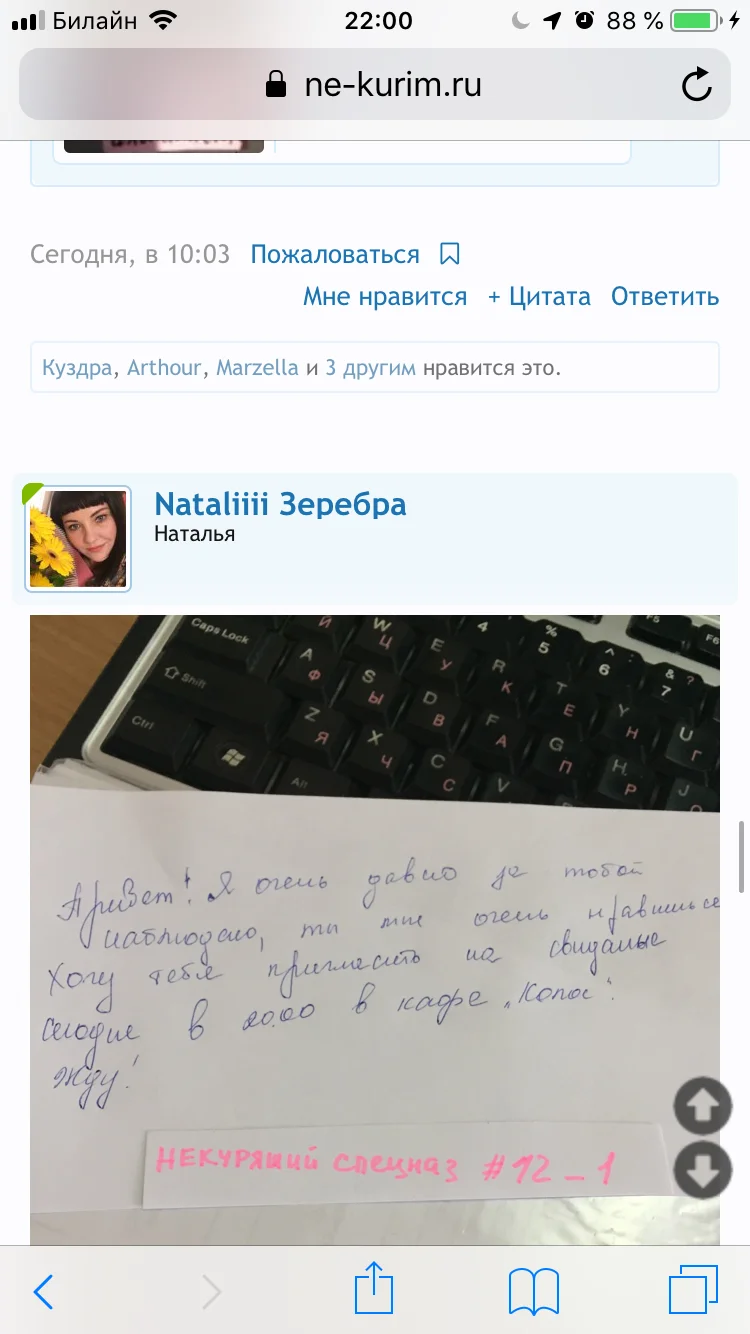 Билайн 22:00 88 %
ne-kurim.ru
Сегодня, в 10:03 Пожаловаться
Мне нравится + Цитата Ответить
Куздра, Arthour, Marzella и 3 другим нравится это.
Nataliiii Зеребра
Наталья
Caps Lock Й W Ц E У 4 R К % 5 T Е ^ : 6 Y Н & ? 7 U Г F5 F6
Shift A Ф S Ы D В F А G П H Р J О
Ctrl Z Я X Ч C С V
Alt
Привет! Я очень давно за тобой
наблюдаю, ты мне очень нравишься
Хочу тебя пригласить на свидание
сегодня в 20.00 в кафе „Колос".
Жду!
НЕКУРЯЩИЙ спецназ #12_1